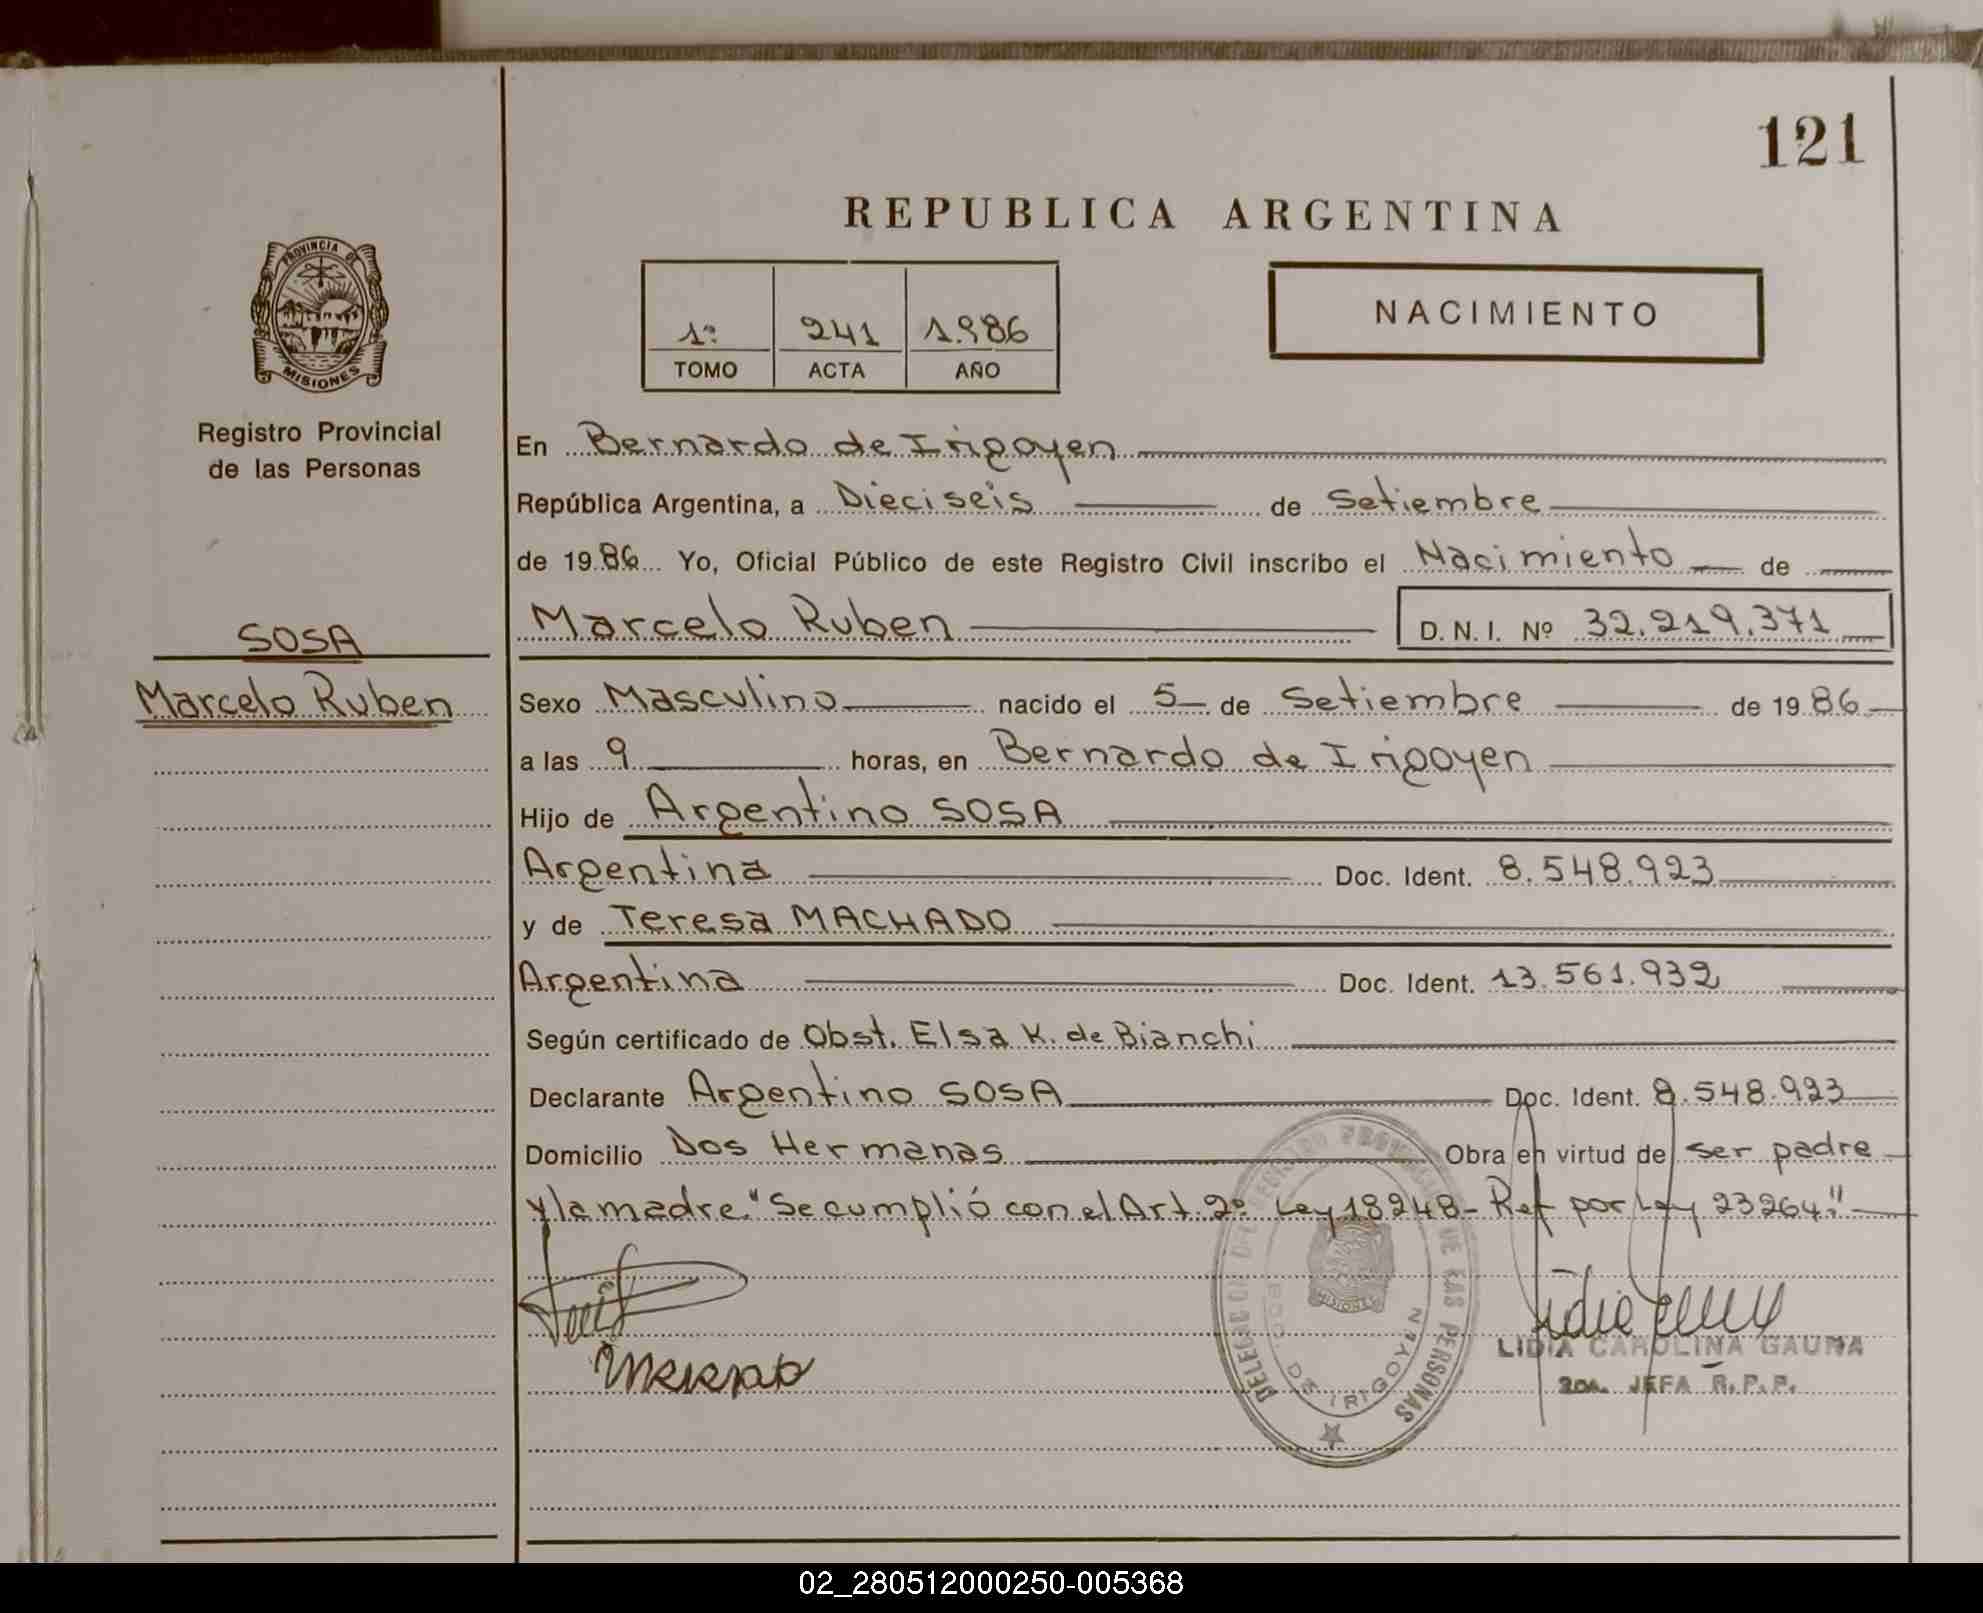 121
REPUBLICA ARGENTINA
PROVINCIA DE
MISIONES
Registro Provincial
de las Personas
1º 241 1.986
TOMO ACTA AÑO
NACIMIENTO
En Bernardo de Irigoyen
República Argentina, a Dieciseis de Setiembre
de 1986 Yo, Oficial Público de este Registro Civil inscribo el Nacimiento de
SOSA
Marcelo Ruben
Marcelo Ruben D.N.I. Nº 32.219.371
Sexo Masculino nacido el 5 de Setiembre de 1986
a las 9 horas, en Bernardo de Irigoyen
Hijo de Argentino SOSA
Argentina Doc. Ident. 8.548.923
y de Teresa MACHADO
Argentina Doc. Ident. 13.561.932
Según certificado de Obst. Elsa K. de Bianchi
Declarante Argentino SOSA Doc. Ident. 8.548.923
Domicilio Dos Hermanas Obra en virtud de ser padre
y la madre. "Se cumplió con el Art. 2º Ley 18248- Ref por Ley 23264."
DE LAS PERSONAS
MISIONES
BDO. DE IRIGOYEN
LIDIA CAROLINA GAUNA
2da. JEFA R.P.P.
02_280512000250-005368